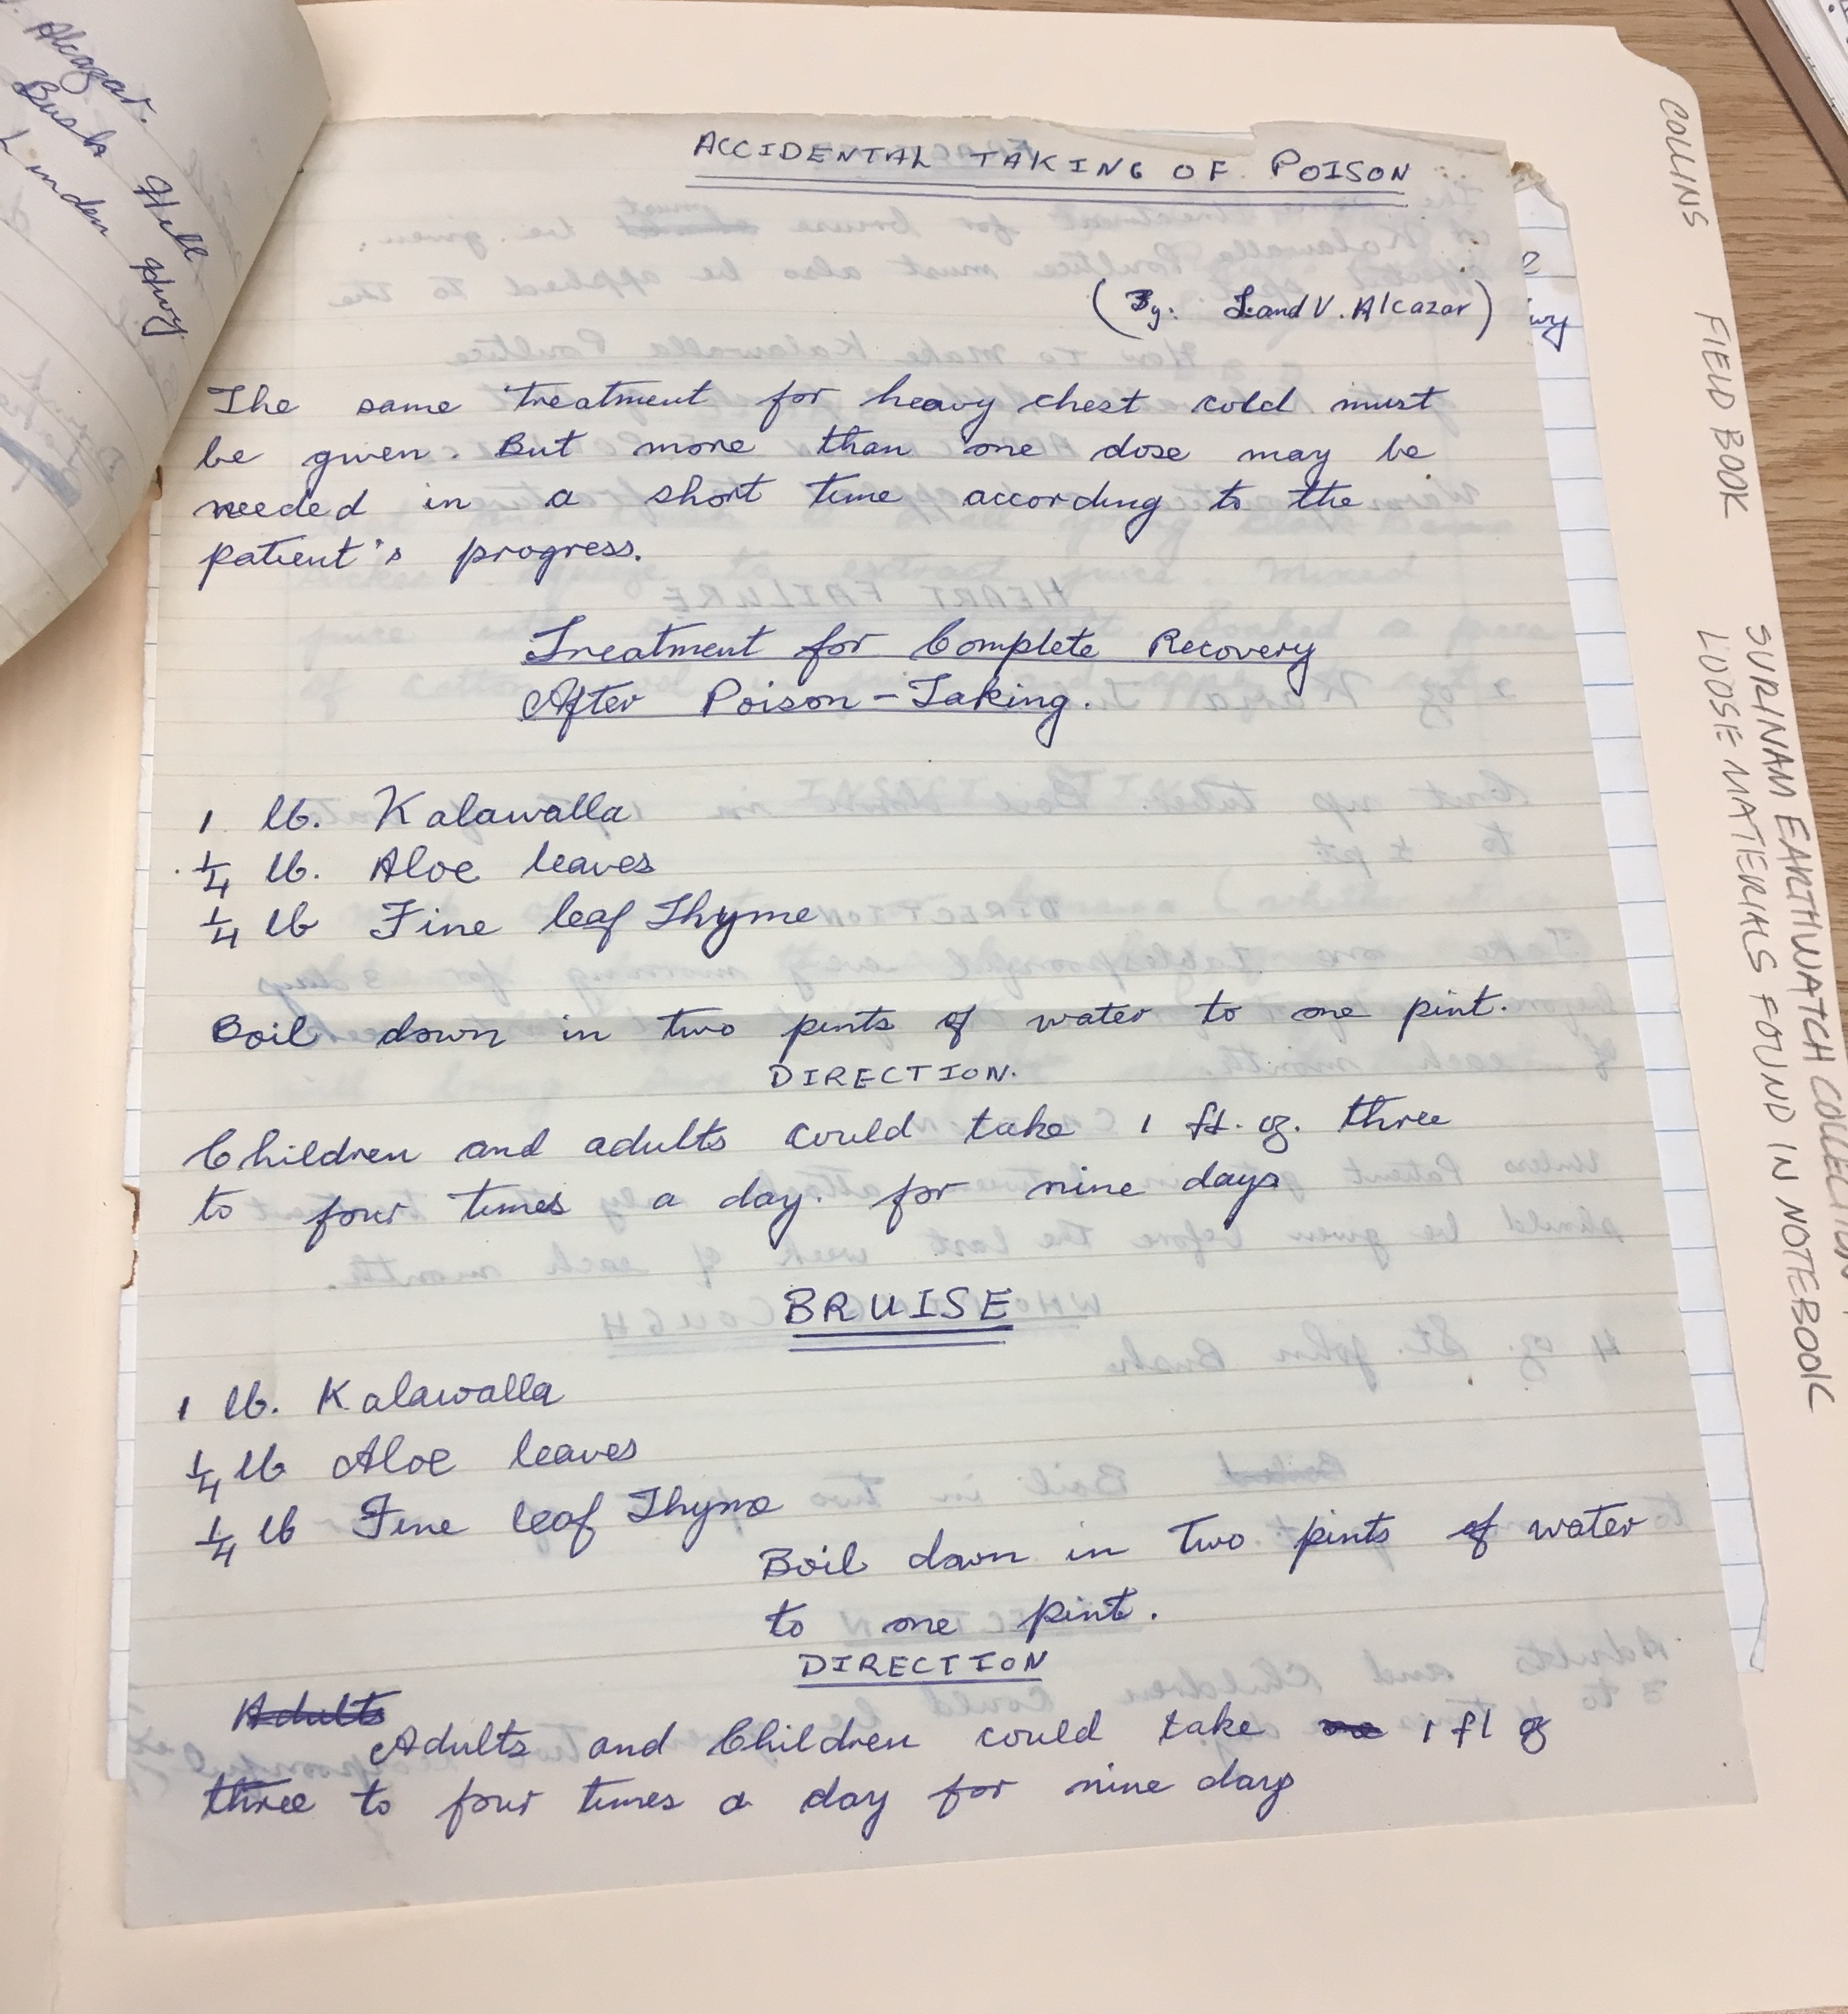 Alcazar.
Bush Hill
Linden Hwy
ACCIDENTAL TAKING OF POISON
(By: L and V. Alcazar)
The same treatment for heavy chest cold must
be given. But more than one dose may be
needed in a short time according to the
patient's progress.
Treatment for Complete Recovery
After Poison-Taking.
1 lb. Kalawalla
1/4 lb. Aloe leaves
1/4 lb Fine leaf Thyme
Boil down in two pints of water to one pint.
DIRECTION.
Children and adults could take 1 fl. oz. three
to four times a day. for nine days
BRUISE
1 lb. Kalawalla
1/4 lb Aloe leaves
1/4 lb Fine leaf Thyme
Boil down in Two pints of water
to one pint.
DIRECTION
Adults
Adults and Children could take one 1 fl oz
three to four times a day for nine days
COLLINS FIELD BOOK
SURINAM EARTHWATCH COLLECTION
LOOSE MATERIALS FOUND IN NOTEBOOK